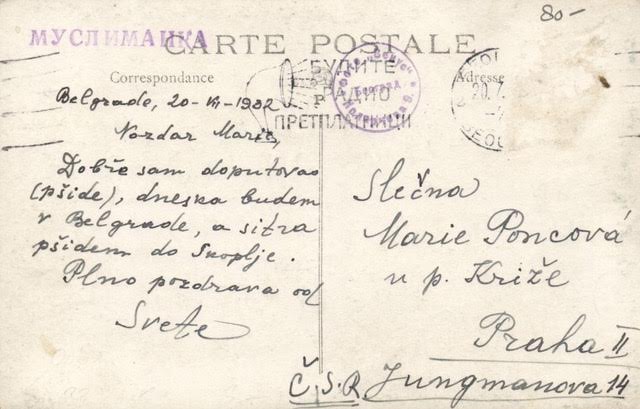 80-
МУСЛИМАНКА
CARTE POSTALE
Correspondance
Adresse
БУДИТЕ
РАДИО
ПРЕТПЛАТНИЦИ
Београд
20.
Belgrade, 20-VII-1932
Nazdar Marie,
Dobře sam doputovao
(pšide), dneska budem
v Belgrade, a sitra
pšidem do Skoplje.
Plno pozdrava od
Svete
Slečna
Marie Poncová
u p. Križe
Praha II
Č.S.R. Jungmanova 14